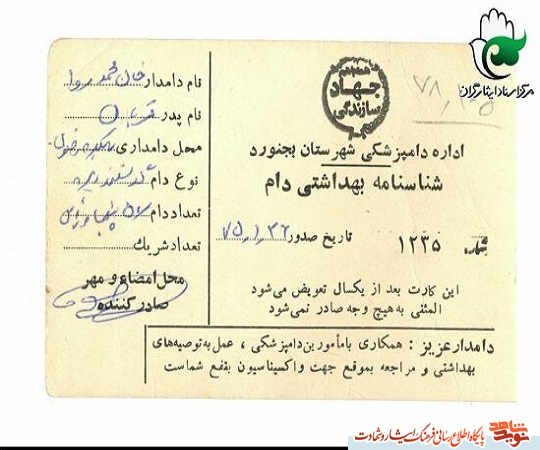 مرکز اسناد ایثارگران
همه با هم
جهاد
سازندگی
اداره دامپزشکی شهرستان بجنورد
شناسنامه بهداشتی دام
شماره ۱۲۳۵ تاریخ صدور ۷۵،۱،۲۲
این کارت بعد از یکسال تعویض می‌شود
المثنی به هیچ وجه صادر نمی‌شود
نام دامدار خان محمد
نام پدر قربان
محل دامداری
نوع دام گوسفند
تعداد دام
تعداد شریك
محل امضاء و مهر
صادر کننده
دامدار عزیز : همکاری با مأمورین دامپزشکی ، عمل به توصیه‌های
بهداشتی و مراجعه بموقع جهت واکسیناسیون بنفع شماست
نوید شاهد
پایگاه اطلاع رسانی فرهنگ ایثار و شهادت